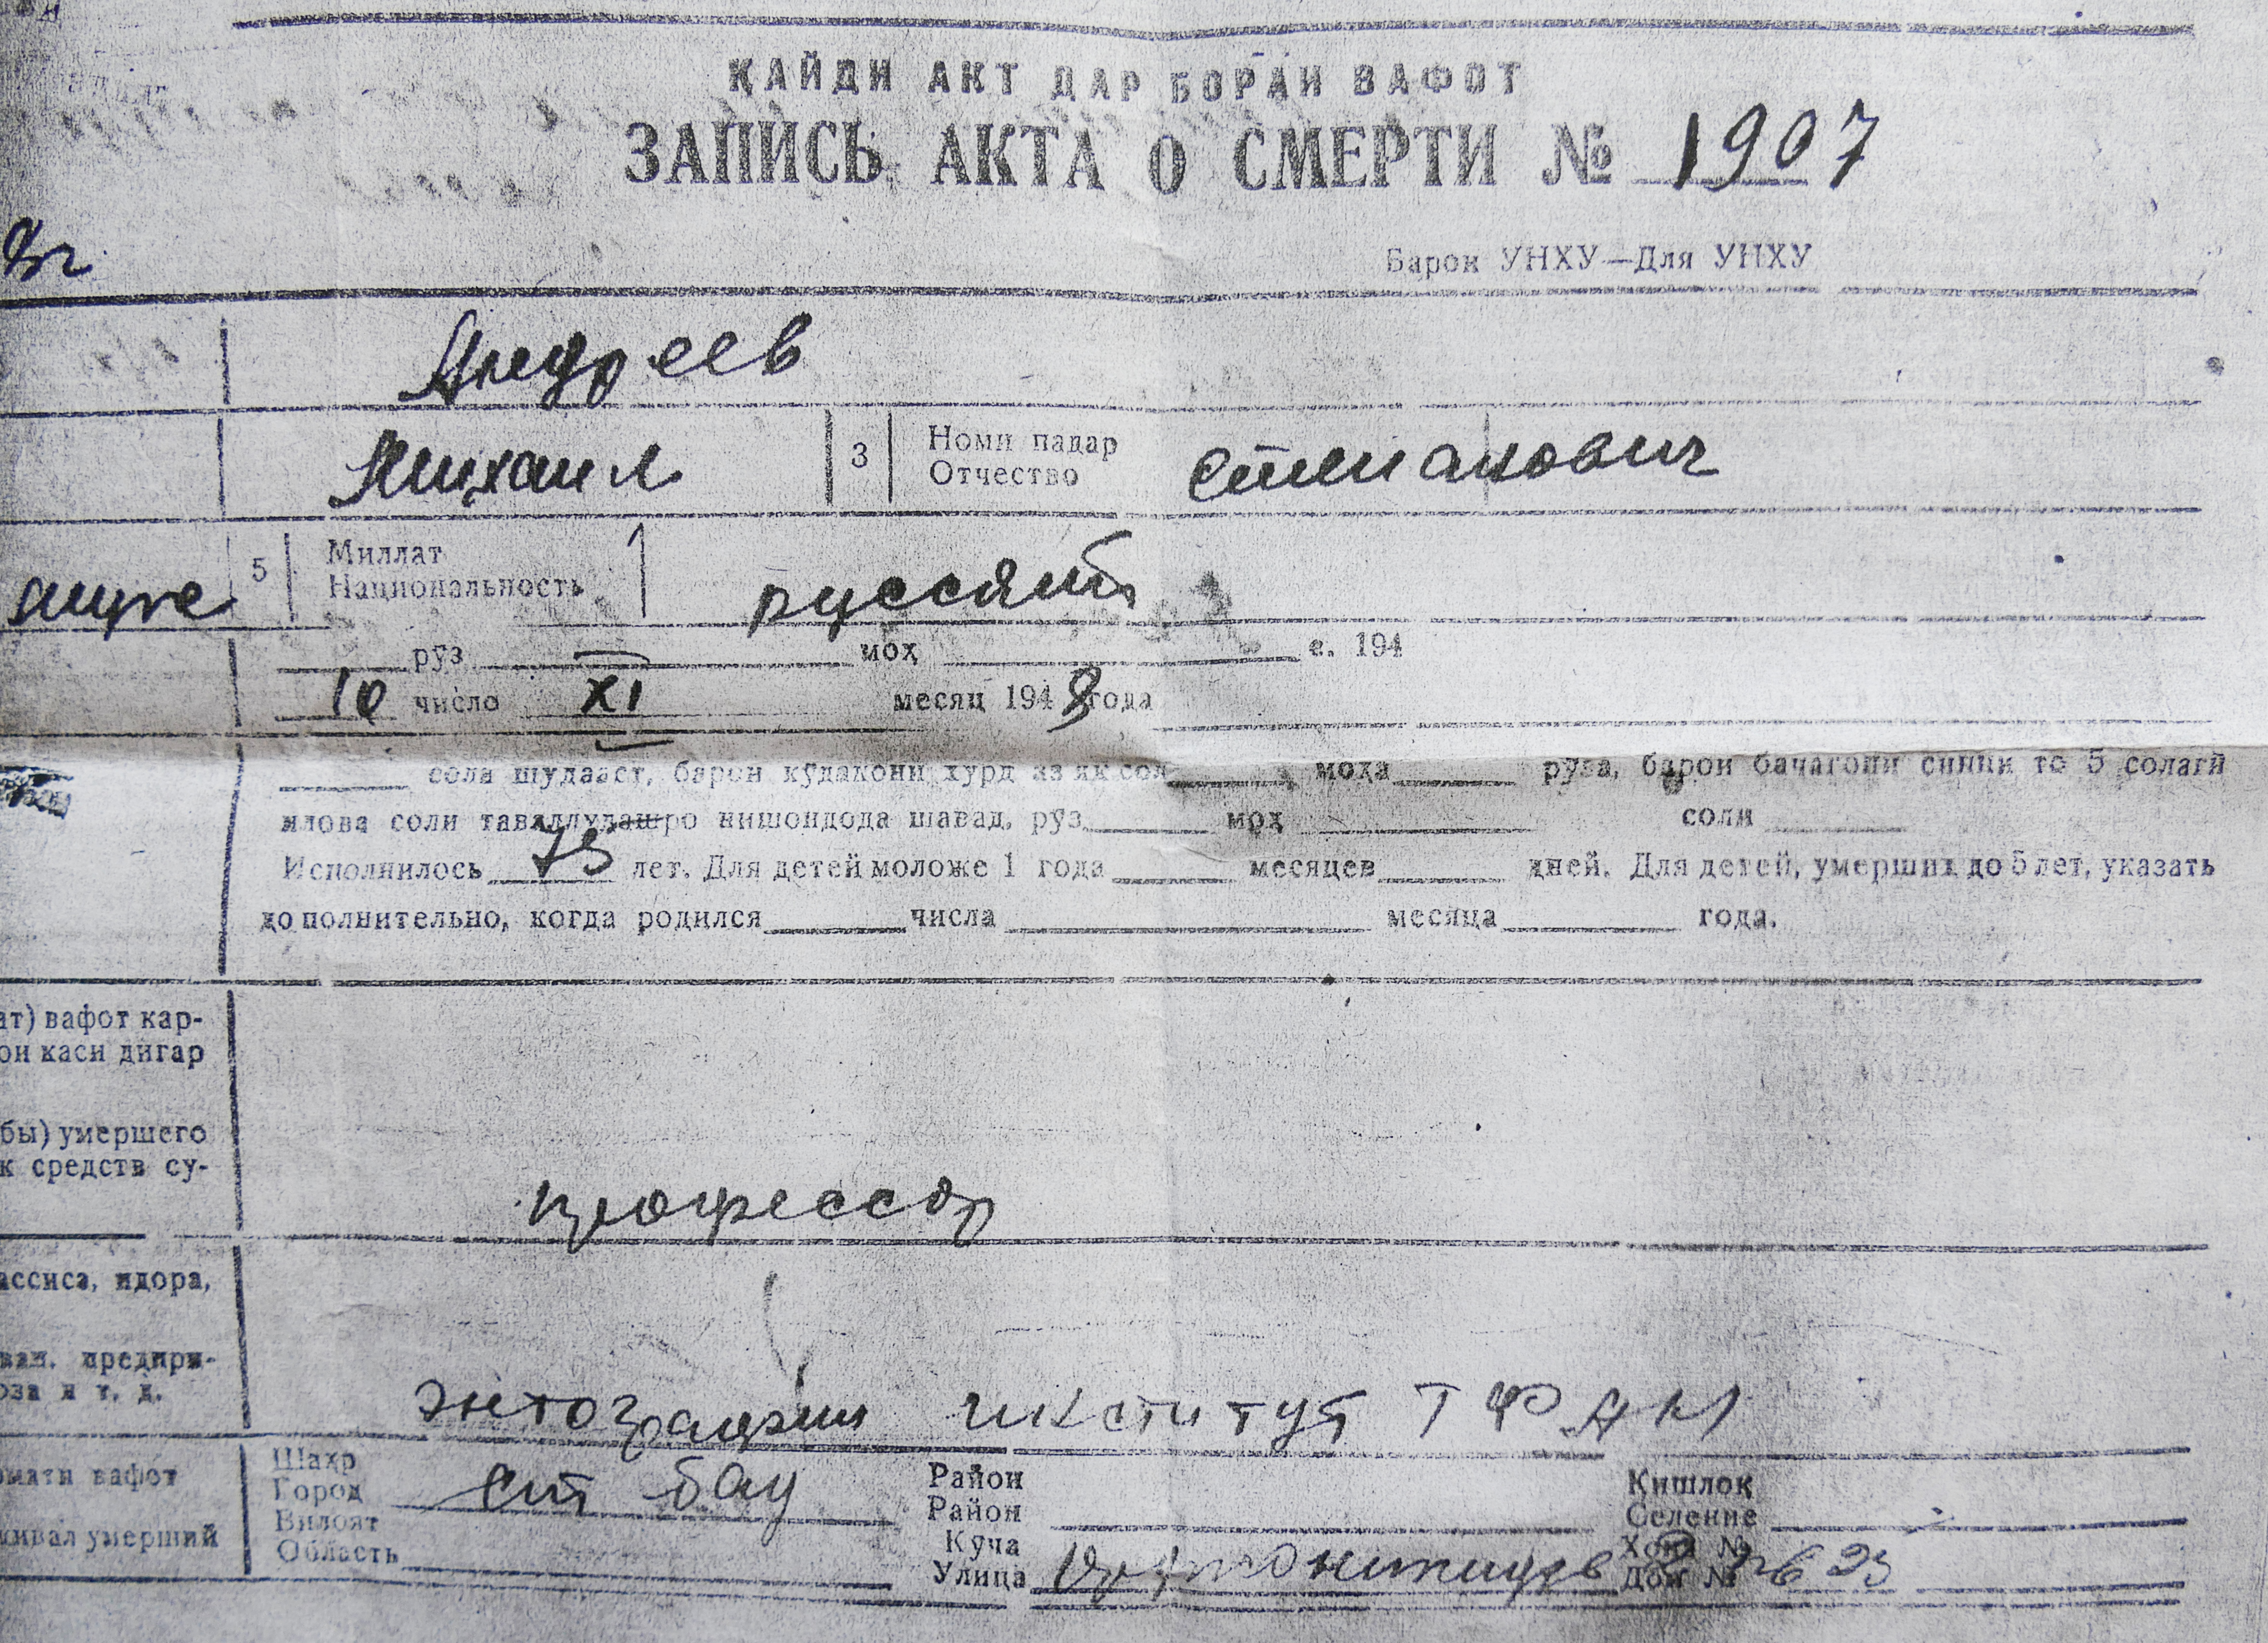 ҚАЙДИ АКТ ДАР БОРАИ ВАФОТ
ЗАПИСЬ АКТА О СМЕРТИ № 1907
8г.
Барои УНХУ—Для УНХУ
Андреев
Михаил 3 Номи падар
Отчество Степанович
5 Миллат
Национальность русский
рӯз моҳ с. 194
10 число XI месяц 1948 года
сола шудааст, барои кӯдакони хурд аз як сол моҳа рӯза, барои бачагони синни то 5 солагӣ
илова соли таваллудашро нишондода шавад, рӯз моҳ соли
Исполнилось 75 лет. Для детей моложе 1 года месяцев дней. Для детей, умерших до 5 лет, указать
дополнительно, когда родился числа месяца года.
ат) вафот кар-
он каси дигар
бы) умершего
к средств су-
профессор
ассиса, идора,
предпри-
оза и т. д.
энтографии институт ТФАН
вафот
живал умерший
Шаҳр
Город Ст бад
Вилоят
Область
Район
Район
Кӯча
Улица
Қишлоқ
Селение
Хона №
Дом № 23